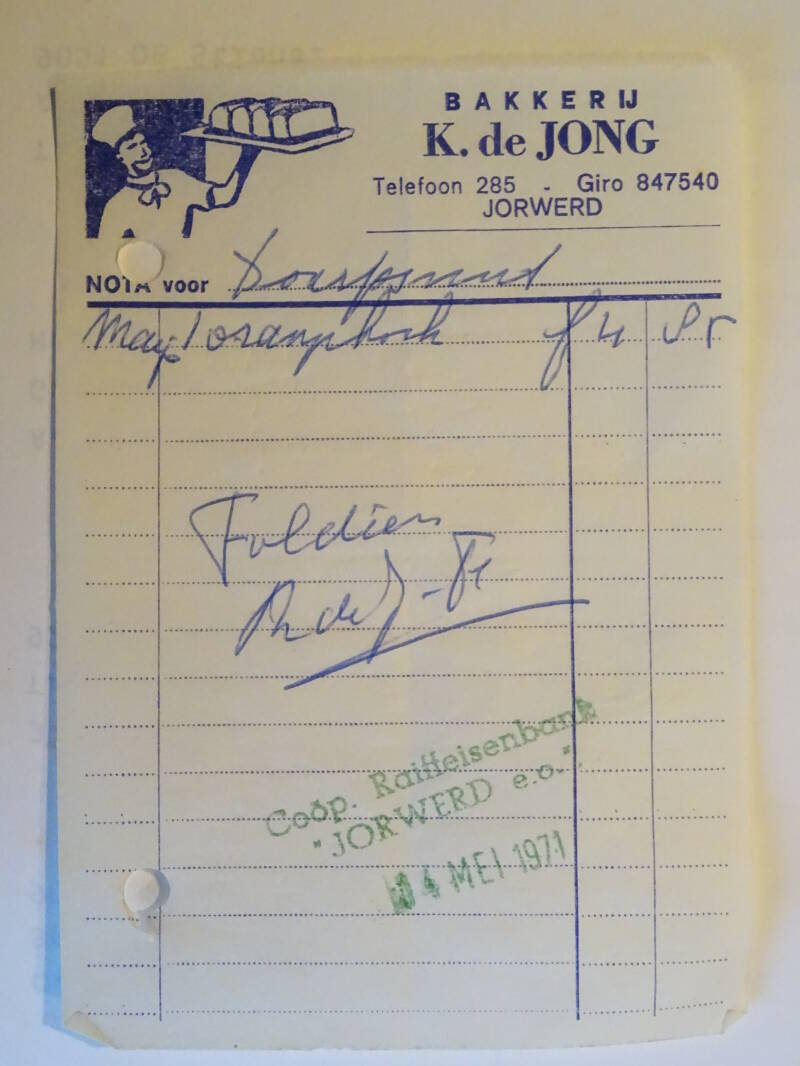 BAKKERIJ
K. de JONG
Telefoon 285 - Giro 847540
JORWERD
NOTA voor Doarpsmună
May 1 oranjekoek f 4 85
Foldien
Coöp. Raiffeisenbank
"JORWERD e.o."
4 MEI 1971